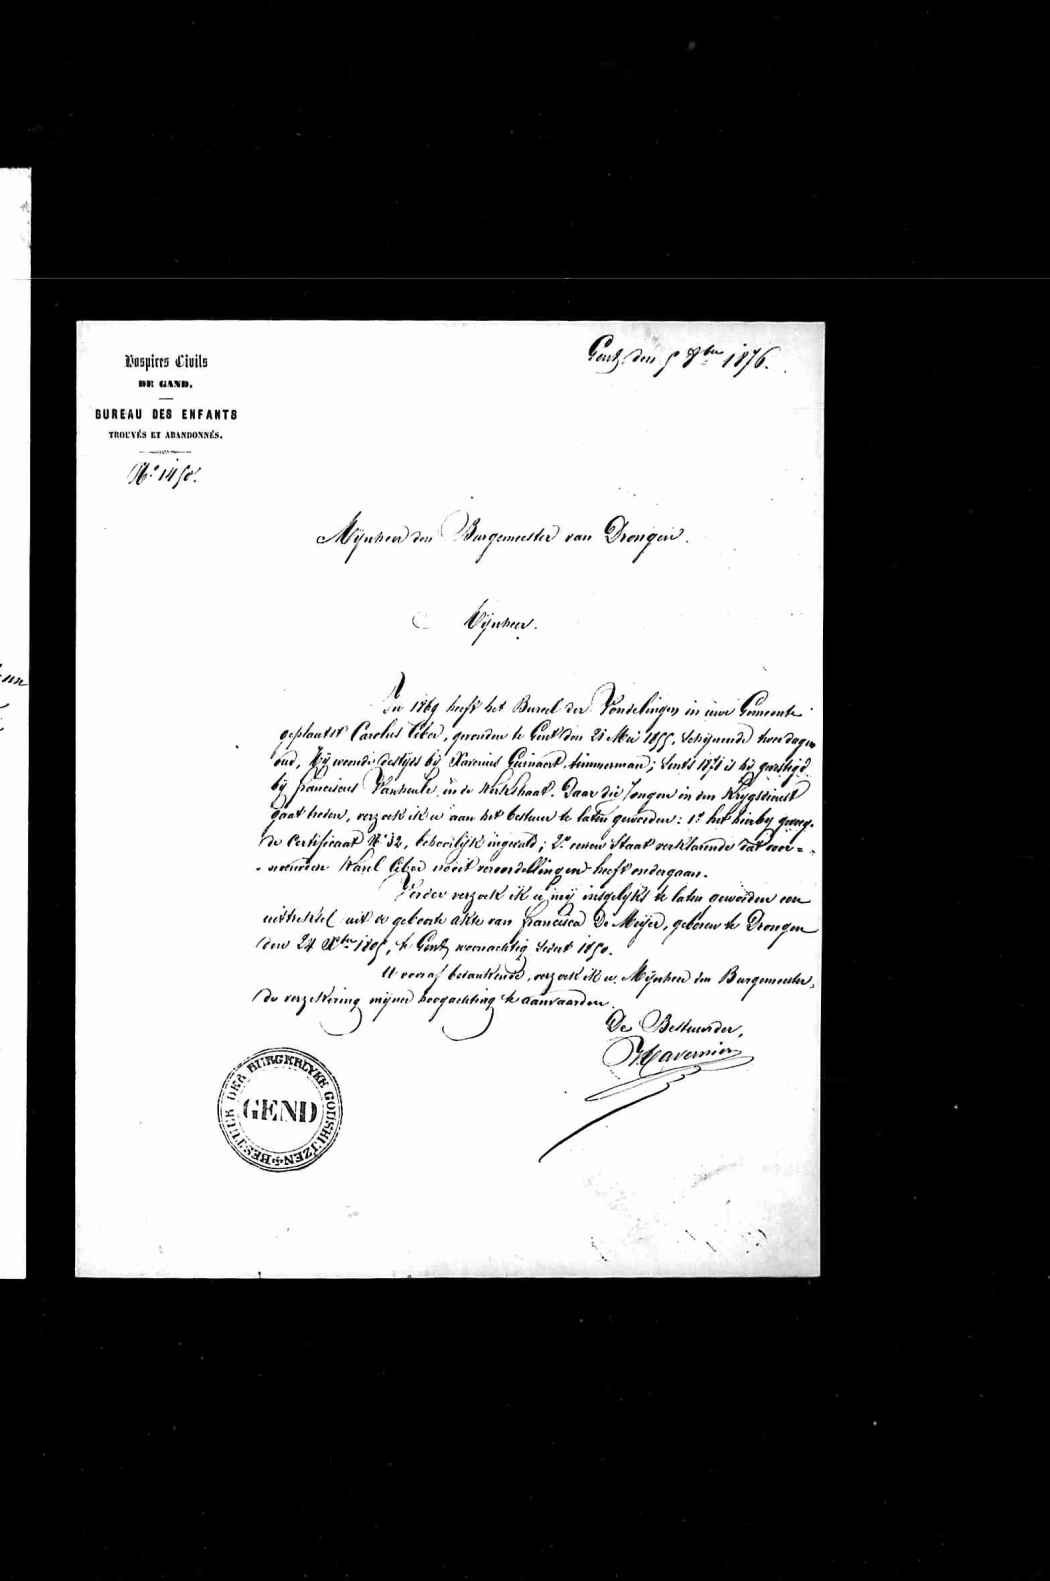 Hospices Civils
DE GAND.
BUREAU DES ENFANTS
TROUVÉS ET ABANDONNÉS.
N.° 1450.
Gent, den 5 8.bre 1876.
Mijnheer den Burgemeester van Drongen.
Mijnheer.
In 1869 heeft het Bureel der Vondelingen in uwe Gemeente
geplaatst Carolus Ceber, gevonden te Gent den 21 Mei 1855, schijnende twee dagen
oud. Hij woonde destijds bij Xaverius Guinaert, timmerman; sents 1871 is hij gevestigd
bij franciscus Vanheule, in de Kerkstraat. Daar die Jongen in den Krijgsdienst
gaat treden, verzoek ik u aan het bestuur te laten geworden: 1.° het hierby gevoeg-
de Certificaat N.° 32, behoorlijk ingevuld; 2.° eenen Staat verklarende dat voor=
noemden Karel Ceber nooit veroordeelingen heeft ondergaan.
Verder verzoek ik u mij insgelijks te laten geworden een
uittreksel uit de geboorte akte van francisca De Meijer, geboren te Drongen
den 24 te Gent woonachtig sedert 1850.
U vooraf bedankende, verzoek ik u, Mijnheer den Burgemeester,
de verzekering mijner hoogachting te aanvaarden.
De Bestuurder,
Tavernier
BESTUER DER BURGERLYKE GODSHUIZEN
GEND